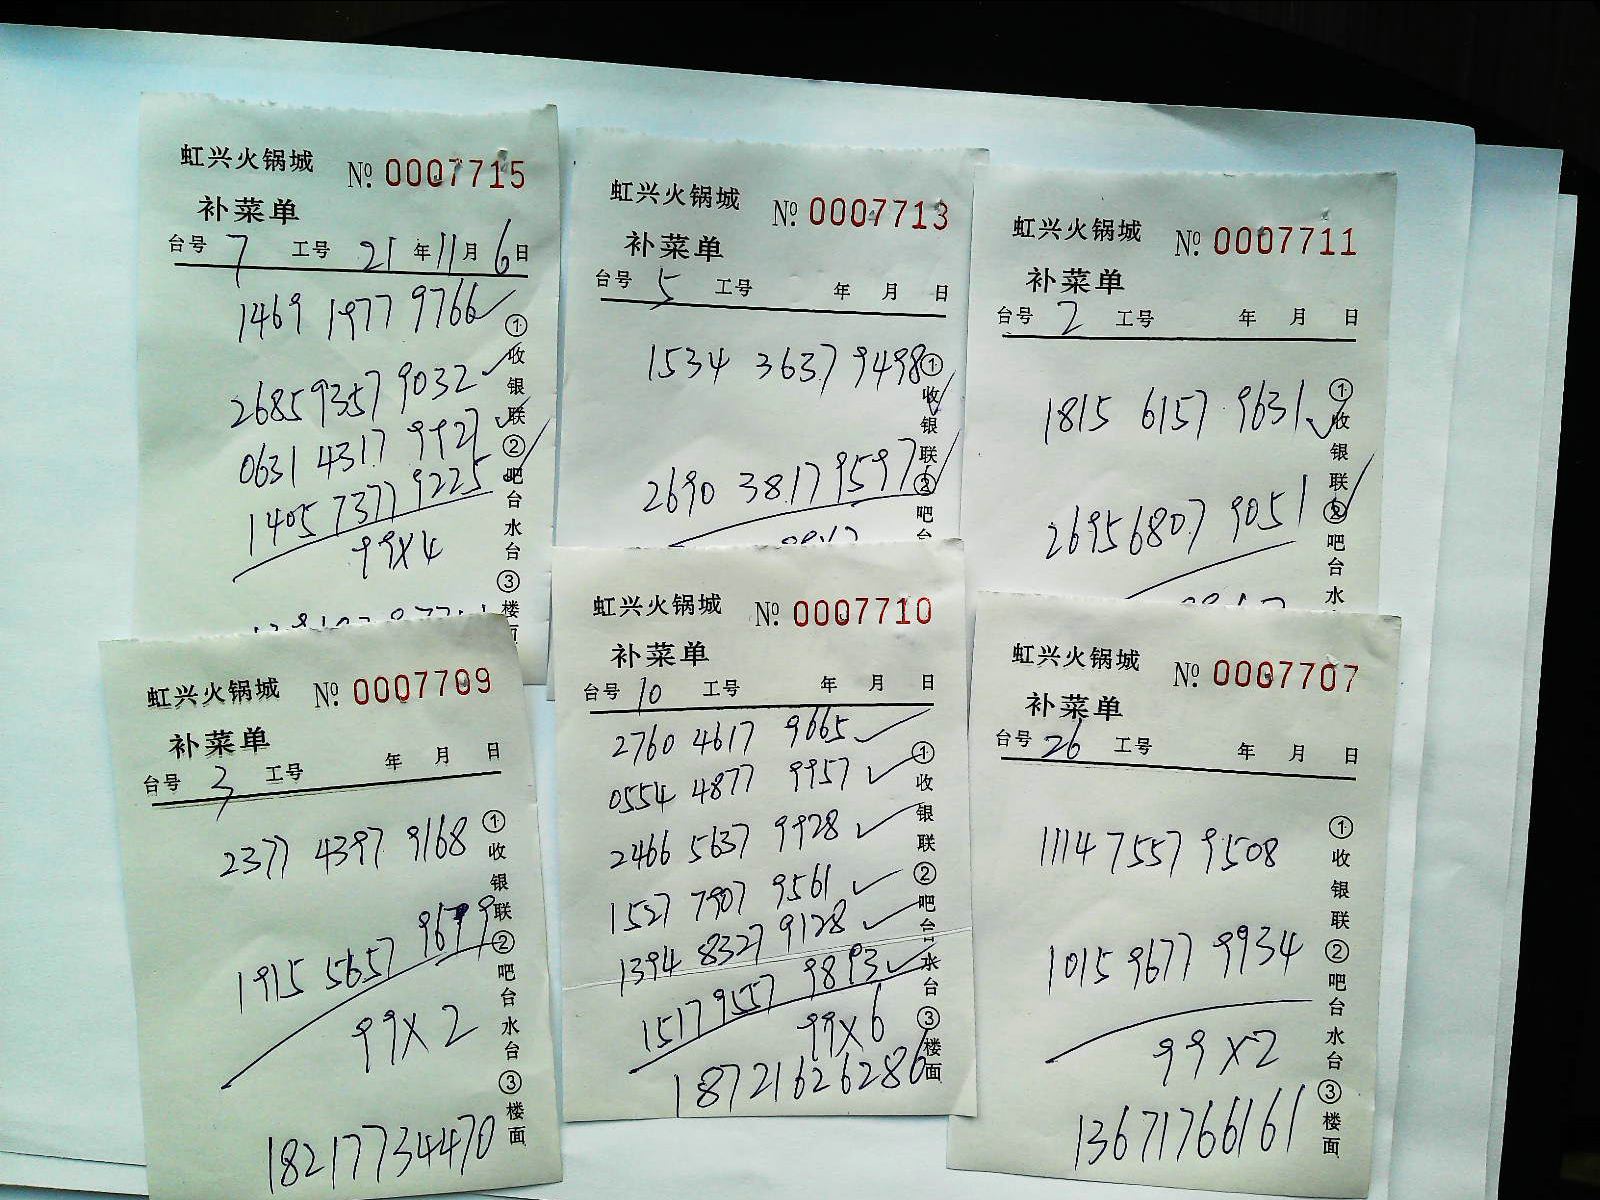 虹兴火锅城 № 0007715
补菜单
台号 7 工号 21 年 11 月 6 日
1469 1977 9766 ✓
2685 9357 9032 ✓
0631 4317 9927 ✓
1405 7377 9225 ✓
99X4
①收银联②吧台水台③楼面
虹兴火锅城 № 0007713
补菜单
台号 5 工号 年 月 日
1534 3637 9498 ✓
2690 3817 9597 ✓
①收银联②吧台
虹兴火锅城 № 0007711
补菜单
台号 2 工号 年 月 日
1815 6157 9631 ✓
2695 6807 9051 ✓
①收银联②吧台水
虹兴火锅城 № 0007709
补菜单
台号 3 工号 年 月 日
2377 4397 9168
1915 5657
99X2
18217734470
①收银联②吧台水台③楼面
虹兴火锅城 № 0007710
补菜单
台号 10 工号 年 月 日
2760 4617 9665 ✓
0554 4877 9957 ✓
2466 5637 9928 ✓
1527 7907 9561 ✓
1394 8327 9128 ✓
1517 9557 9893 ✓
99X6
18721626286
①收银联②吧台水台③楼面
虹兴火锅城 № 0007707
补菜单
台号 26 工号 年 月 日
1114 7557 9508
1015 9677 9934
99X2
13671766161
①收银联②吧台水台③楼面